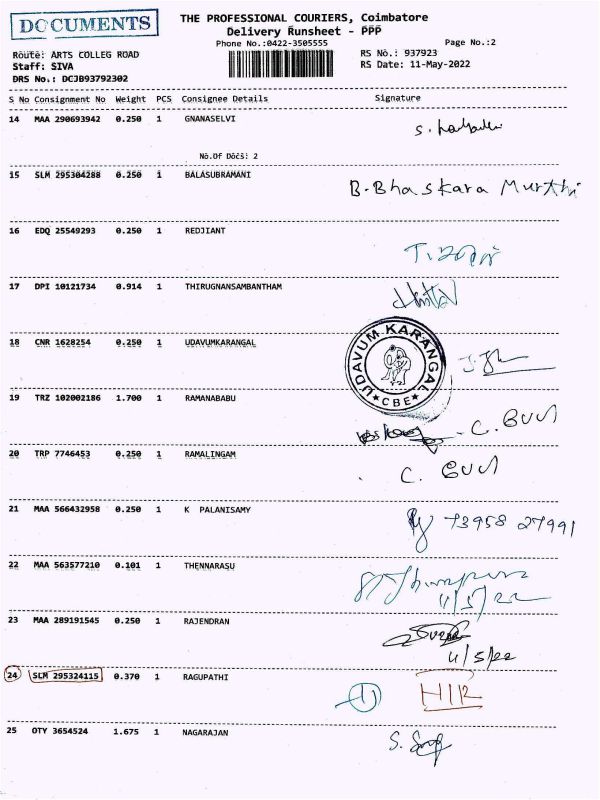 DOCUMENTS
THE PROFESSIONAL COURIERS, Coimbatore
Delivery Runsheet - PPP
Phone No.:0422-3505555
Page No.:2
Route: ARTS COLLEG ROAD
Staff: SIVA
DRS No.: DCJB93792302
RS No.: 937923
RS Date: 11-May-2022
S No Consignment No Weight PCS Consignee Details Signature
14 MAA 290693942 0.250 1 GNANASELVI
No.Of Docs: 2
15 SLM 295304288 0.250 1 BALASUBRAMANI B.Bhaskara Murthi
16 EDQ 25549293 0.250 1 REDJIANT
17 DPI 10121734 0.914 1 THIRUGNANSAMBANTHAM
18 CNR 1628254 0.250 1 UDAVUMKARANGAL
UDAVUM KARANGAL
CBE
19 TRZ 102002186 1.700 1 RAMANABABU
20 TRP 7746453 0.250 1 RAMALINGAM
21 MAA 566432958 0.250 1 K PALANISAMY 73958 27991
22 MAA 563577210 0.101 1 THENNARASU
11/5/22
23 MAA 289191545 0.250 1 RAJENDRAN
11/5/22
24 SLM 295324115 0.370 1 RAGUPATHI
25 OTY 3654524 1.675 1 NAGARAJAN